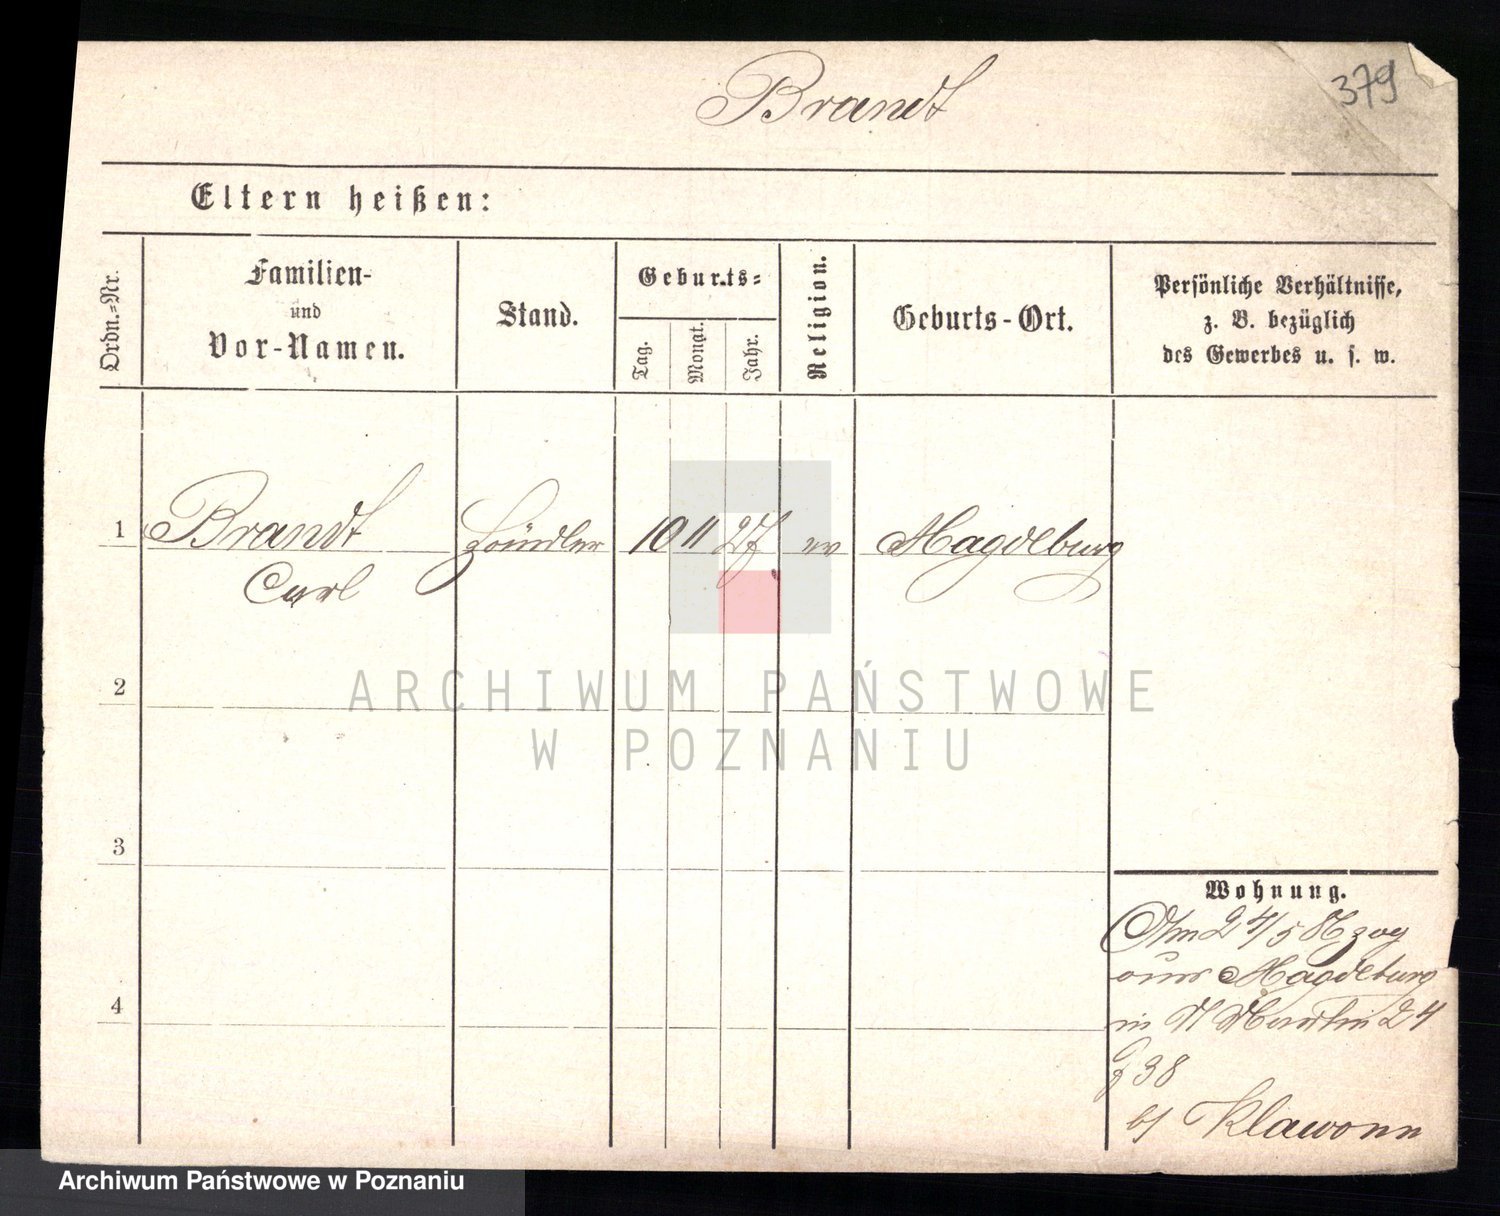 379
Brandt
Eltern heißen:
Ordn.-Nr.
Familien-
und
Vor-Namen.
Stand.
Geburts-
Tag.
Monat.
Jahr.
Religion.
Geburts-Ort.
Persönliche Verhältnisse,
z. B. bezüglich
des Gewerbes u. s. w.
1
Brandt
Carl
Händler
10
11
27
ev
Magdeburg
2
ARCHIWUM PAŃSTWOWE
W POZNANIU
3
4
Wohnung.
24/5 zog
aus Magdeburg
in 24
38
b/ Klawonn
Archiwum Państwowe w Poznaniu